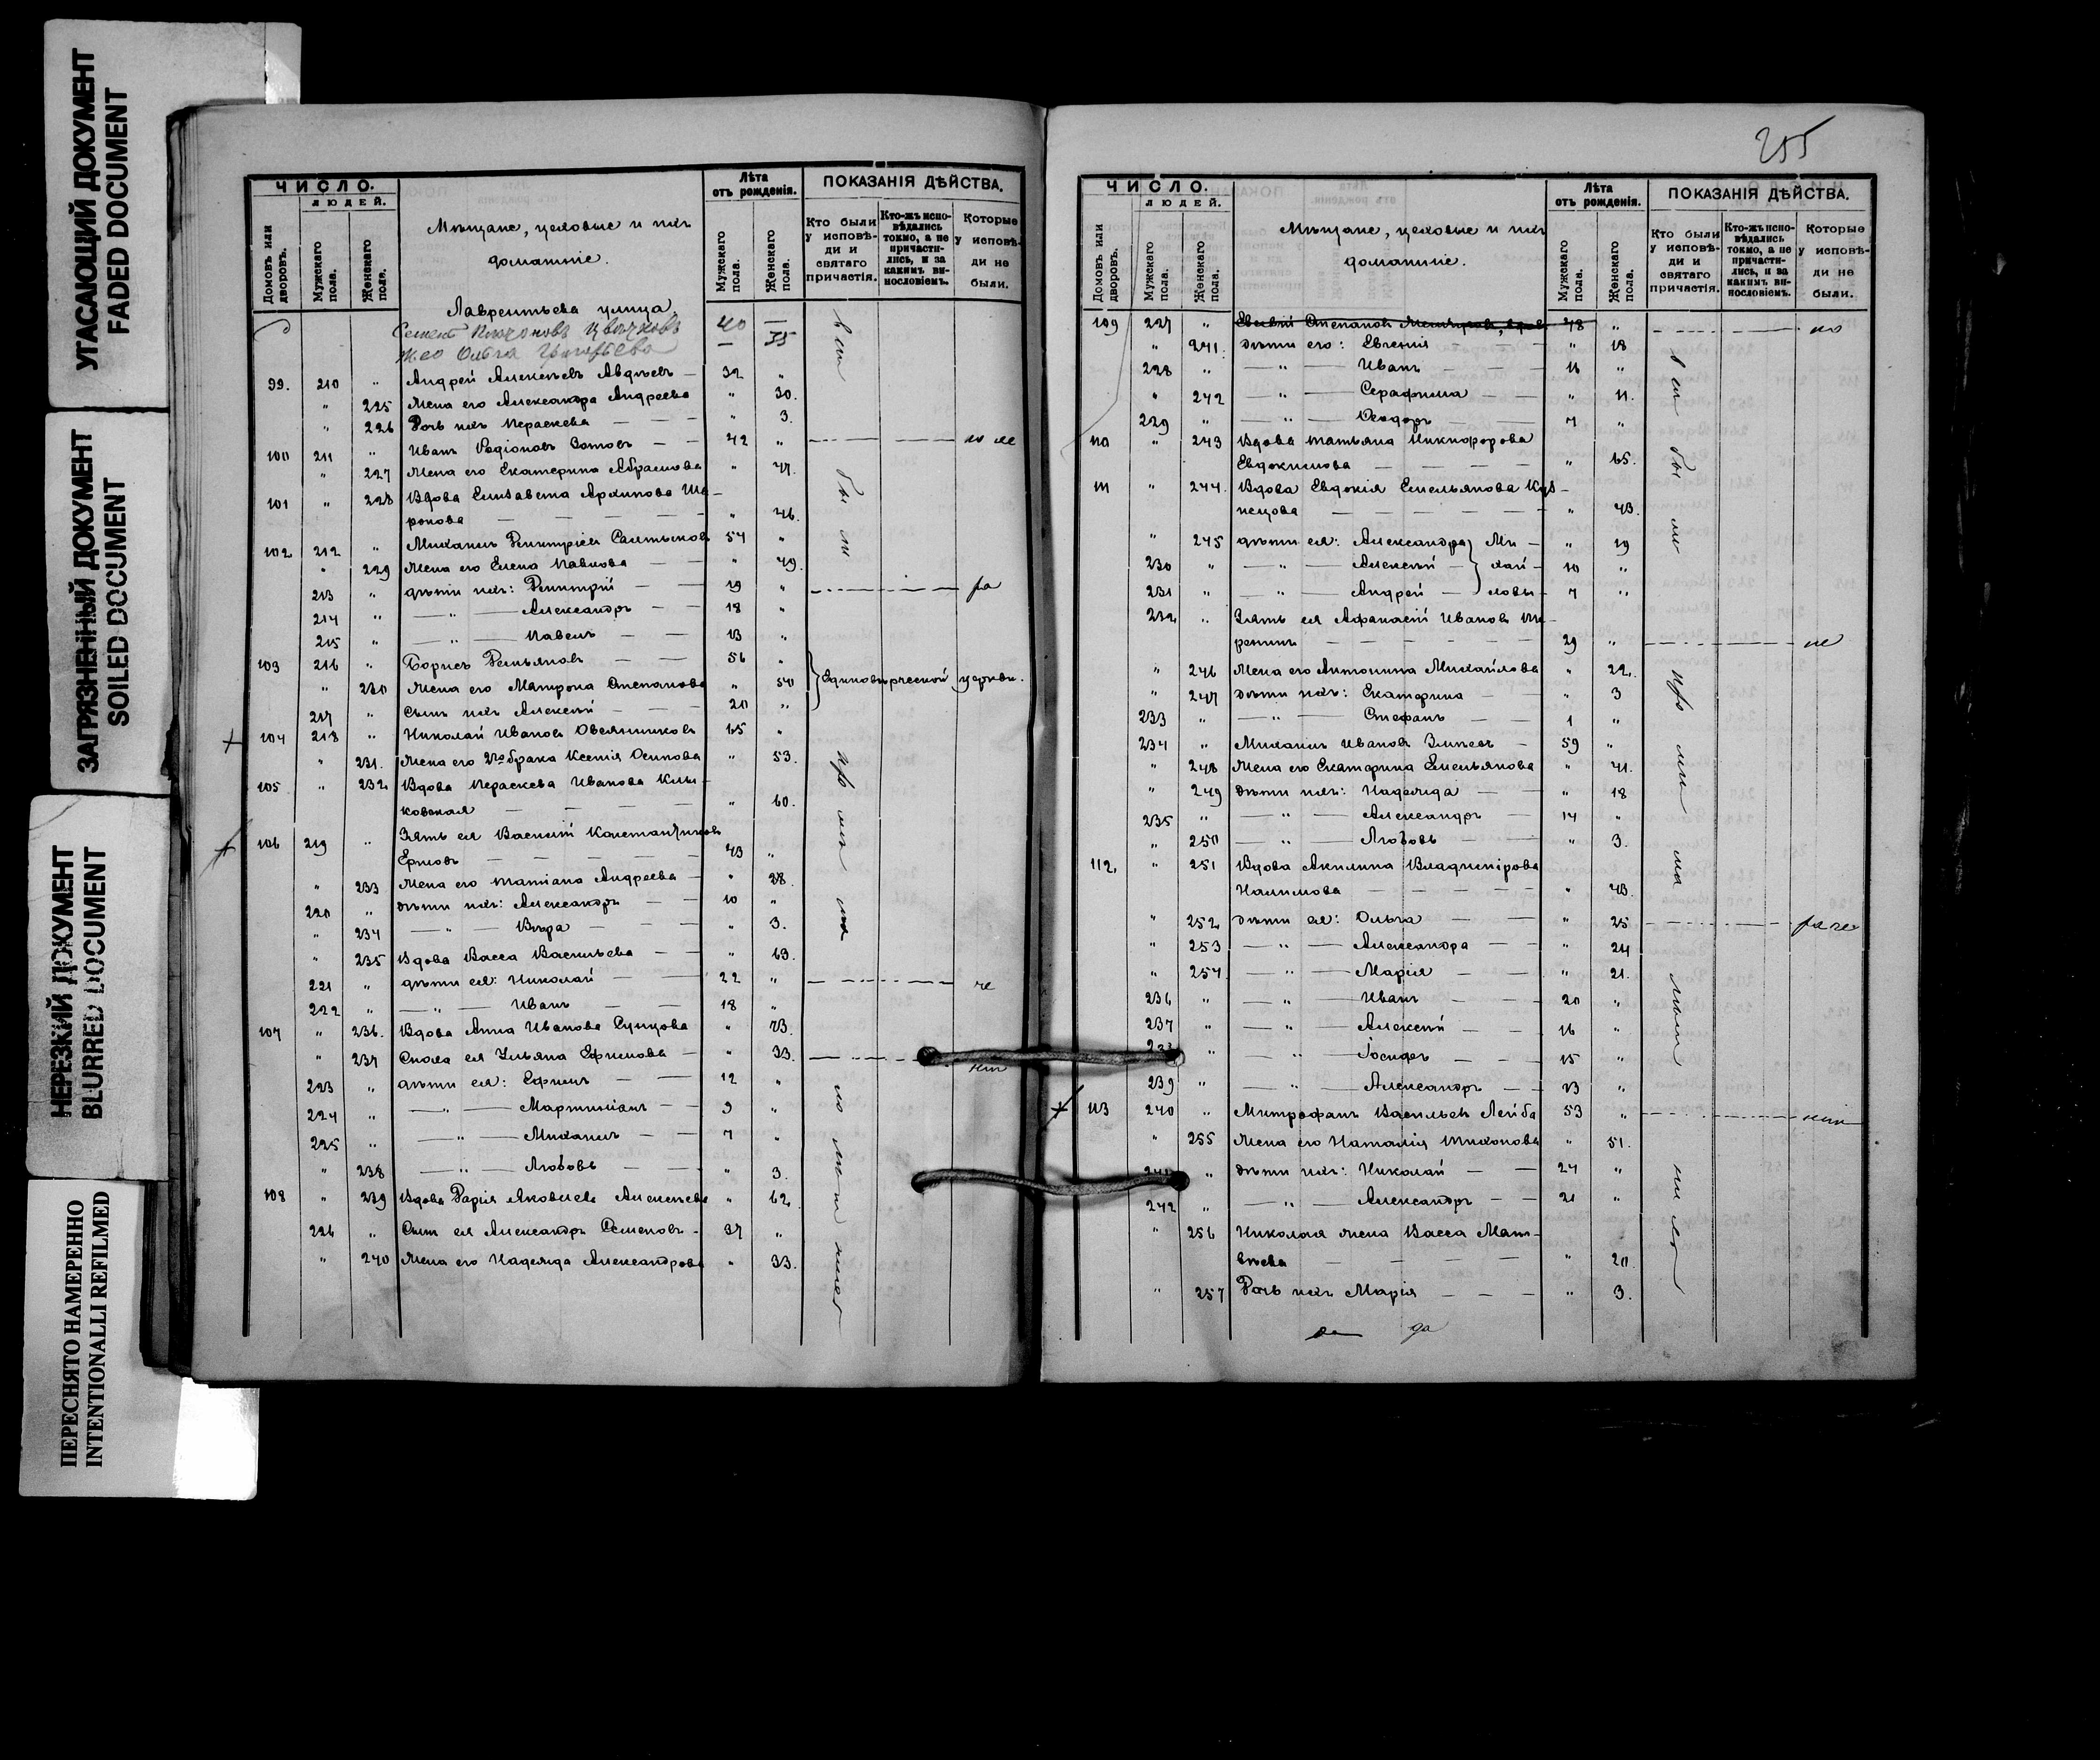 УГАСАЮЩИЙ ДОКУМЕНТ
FADED DOCUMENT
ЗАГРЯЗНЕННЫЙ ДОКУМЕНТ
SOILED DOCUMENT
НЕРЕЗКИЙ ДОКУМЕНТ
BLURRED DOCUMENT
ПЕРЕСНЯТО НАМЕРЕННО
INTENTIONALLI REFILMED
ЧИСЛО.
ЛЮДЕЙ.
Домовъ или дворовъ.
Мужскаго пола.
Женскаго пола.
Мѣщане, цеховые и ихъ
домашніе.
Лѣта отъ рожденія.
Мужскаго пола.
Женскаго пола.
ПОКАЗАНІЯ ДѢЙСТВА.
Кто были у исповѣ-ди и святаго причастія.
Кто-жъ испо-вѣдались токмо, а не причасти-лись, и за какимъ ви-нословіемъ.
Которые у исповѣ-ди не были.
Лаврентьева улица
40 —
Жео Ольга Григорьева — 35
99. 210 " Андрей Алексѣевъ Авдѣевъ — 32 "
" 225 Жена его Александра Андреева " 30.
" 226 Дочь ихъ Параскева — — " 3.
100 211 " Иванъ Родіоновъ Зотовъ — — 42 "
" 227 Жена его Екатерина Абрамова " 41.
101 " 228 Вдова Елисавета Архипова Ша-
ронова — — — — " 46.
102 212 " Михаилъ Димитріевъ Салтыковъ 54 "
" 229 Жена его Елена Павлова — — " 49.
213 " Дѣти ихъ: Димитрій — — 19 "
214 " — " — Александръ — — 18 "
215 " — " — Павелъ — — 13 "
103 216 " Борисъ Демьяновъ — — 56 "
" 230 Жена его Матрона Степанова " 50 Единовѣрческой церкви.
217 " Сынъ ихъ Алексѣй — — 20 "
104 218 " Николай Ивановъ Овсянниковъ 65 "
" 231. Жена его 2го брака Ксенія Осипова " 53.
105 " 232 Вдова Параскева Иванова Клы-
ковская — — — — " 60.
106 219 " Зять ея Василій Константиновъ
Ершовъ — — — — 43 "
" 233 Жена его Татіана Андреева — " 38.
220 " Дѣти ихъ: Александръ — — 10 "
" 234 — " — Вѣра — — " 3.
" 235 Вдова Васса Васильева — — " 63.
221 " Дѣти ея: Николай — — 22 "
222 " — " — Иванъ — — 18 "
107 " 236. Вдова Анна Иванова Сунцова " 73.
" 237 Сноха ея Ульяна Ефимова — " 33.
223 " Дѣти ея: Ефимъ — — 12 "
224 " — " — Мартиніанъ — 9 "
225 " — " — Михаилъ — — 7 "
" 238 — " — Любовь — — " 3.
108 " 239 Вдова Дарія Яковлева Алексѣева " 62.
226 " Сынъ ея Александръ Семеновъ - 37 "
" 240 Жена его Надежда Александрова " 33.
255
ЧИСЛО.
ЛЮДЕЙ.
Домовъ или дворовъ.
Мужскаго пола.
Женскаго пола.
Мѣщане, цеховые и ихъ
домашніе.
Лѣта отъ рожденія.
Мужскаго пола.
Женскаго пола.
ПОКАЗАНІЯ ДѢЙСТВА.
Кто были у исповѣ-ди и святаго причастія.
Кто-жъ испо-вѣдались токмо, а не причасти-лись, и за какимъ ви-нословіемъ.
Которые у исповѣ-ди не были.
109 227 " Степановъ 48 "
" 241. Дѣти его: Евгенія — — " 18
228 " — " — Иванъ — — 16 "
" 242 — " — Серафима — — " 11.
229 " — " — Ѳеодоръ — — 7 "
110 " 243 Вдова Татьяна Никифорова
Евдокимова — — — " 65.
111 " 244. Вдова Евдокія Емельянова Куз-
нецова — — — — " 43.
" 245 Дѣти ея: Александра } Ми — " 19
230 " — " — Алексѣй — } хай — 10 "
231 " — " — Андрей — } ловы — 7 "
232 " Зять ея Афанасій Ивановъ
29 "
" 246 Жена его Антонина Михайлова " 22.
" 247 Дѣти ихъ: Екатерина — — " 3
233 " — " — Стефанъ — — 1 "
234 " Михаилъ Ивановъ Змѣевъ — 59 "
" 248 Жена его Екатерина Емельянова " 41.
" 249 Дѣти ихъ: Надежда — — " 18
235 " — " — Александръ — 14 "
" 250 — " — Любовь — — " 3.
112. " 251 Вдова Акилина Владимірова
Налимова — — — — " 43.
" 252 Дѣти ея: Ольга — — " 25
" 253 — " — Александра — — " 24
" 254. — " — Марія — — " 21.
236 " — " — Иванъ — — 20 "
237 " — " — Алексѣй — — 16 "
" — " — Іосифъ — — 15 "
239 " — " — Александръ — — 13 "
113 240 " Митрофанъ Васильевъ Лейба 53 "
" 255 Жена его Наталія Тихонова " 51.
" Дѣти ихъ: Николай — — 24 "
242 " — " — Александръ — — 21 "
" 256 Николая жена Васса Мат-
вѣева — — — — " 20.
" 257 Дочь ихъ Марія — — — " 3.